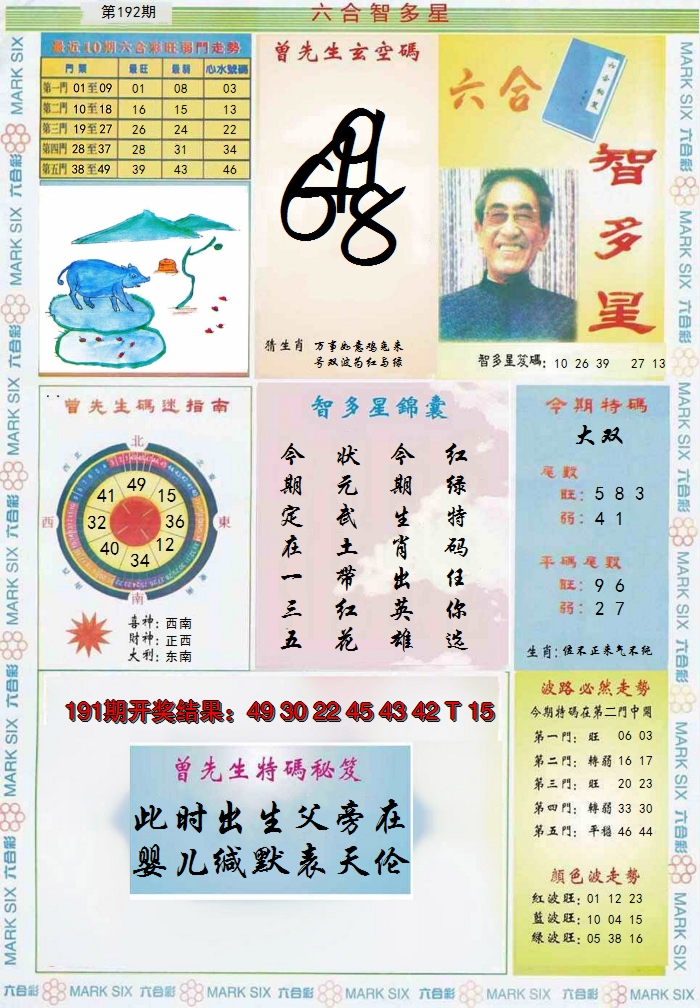 第192期
六合智多星
最近10期六合彩旺弱門走勢
門類 最旺 最弱 心水號碼
第一門 01至09 01 08 03
第二門 10至18 16 15 13
第三門 19至27 26 24 22
第四門 28至37 28 31 34
第五門 38至49 39 43 46
曾先生玄空碼
猜生肖 万事如意鸡兔来
号双波芶红与绿
六合
智多星
智多星笈碼: 10 26 39 27 13
曾先生碼迷指南
北
西
東
南
49
15
36
12
34
40
32
41
喜神: 西南
財神: 正西
大利: 东南
智多星錦囊
红绿特码任你选
今期生肖出英雄
状元武士带红花
今期定在一三五
今期特碼
大双
尾數
旺: 5 8 3
弱: 4 1
平碼尾數
旺: 9 6
弱: 2 7
生肖: 位不正来气不纯
191期开奖结果：49 30 22 45 43 42 T 15
曾先生特碼秘笈
此时出生父旁在
婴儿缄默表天伦
波路必然走勢
今期特碼在第二門中開
第一門: 旺 06 03
第二門: 轉弱 16 17
第三門: 旺 20 23
第四門: 轉弱 33 30
第五門: 平穩 46 44
顏色波走勢
紅波旺: 01 12 23
藍波旺: 10 04 15
綠波旺: 05 38 16
六合彩 MARK SIX 六合彩 MARK SIX 六合彩 MARK SIX 六合彩 MARK SIX 六合彩